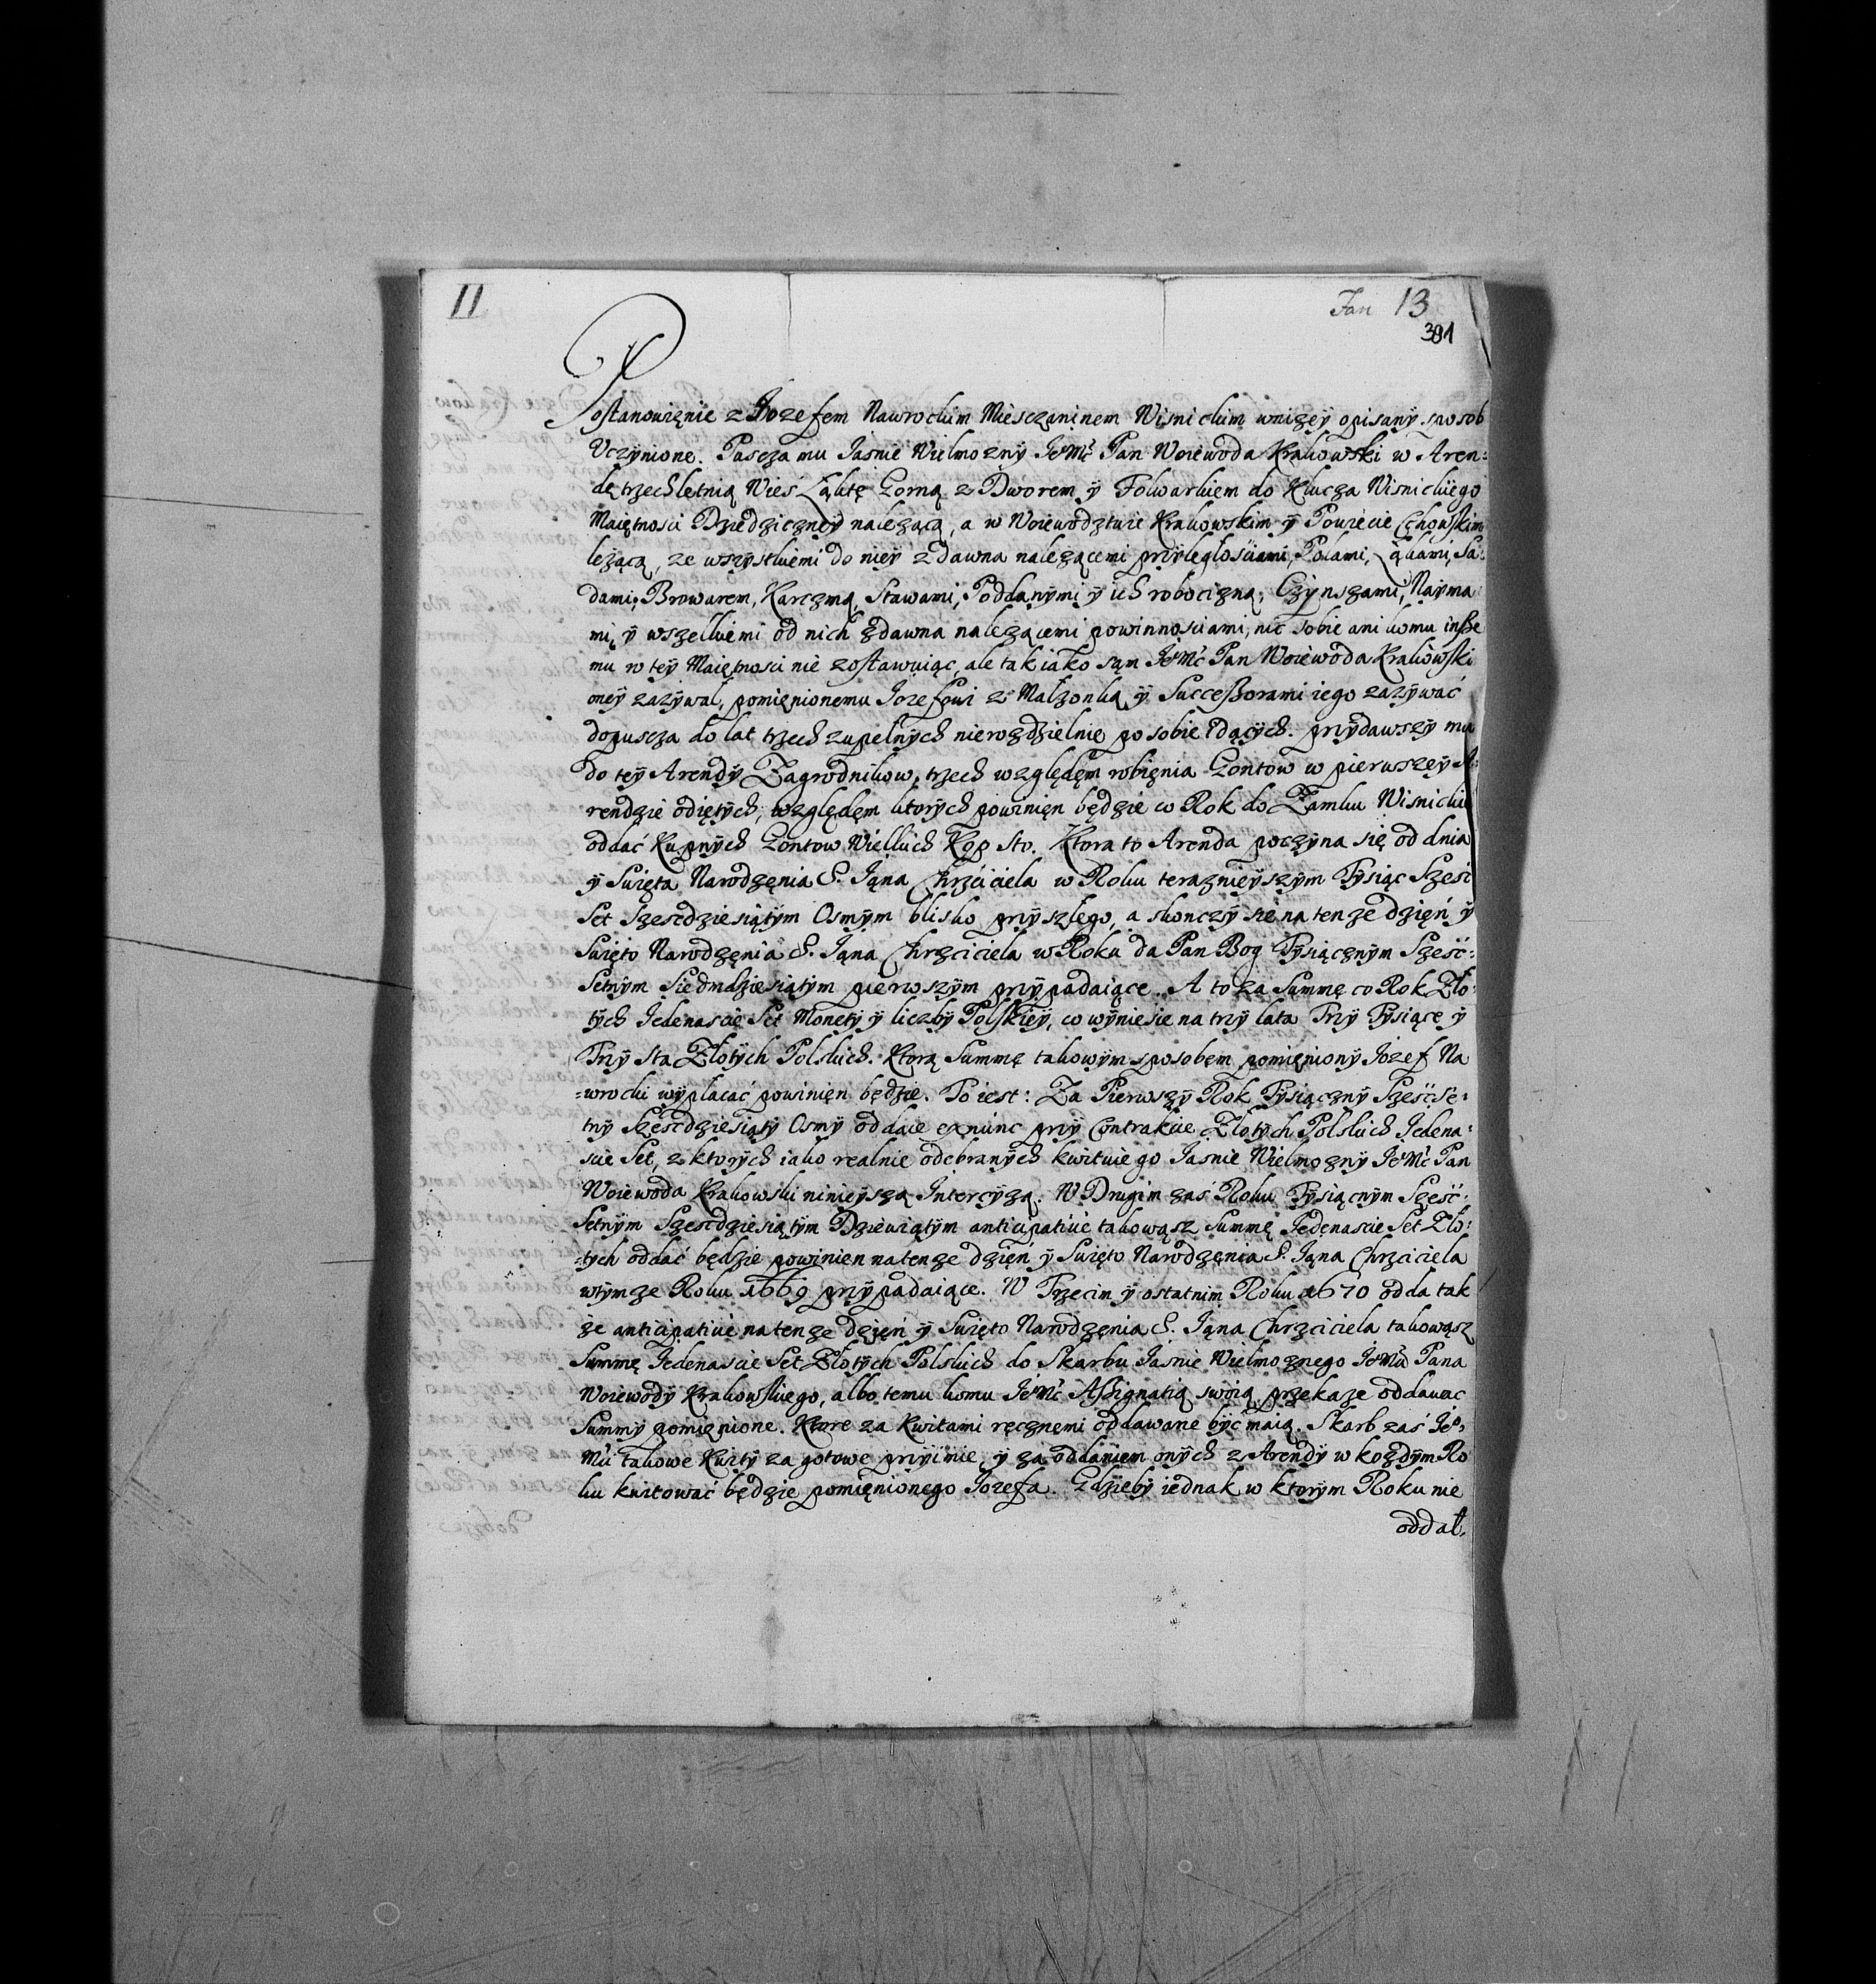 II
Jan 13
391
Postanowięnie z Jozefem Nawrockim Miesczaninem Wisnickim wnizeÿ opisanÿ sposob
Vczÿnione. Pascza mu Jasnie Wielmoznÿ JeoMć Pan Woiewoda Krakowski w Aren:
dę trzechletnią Wieś Łąktę Gorną z Dworem ÿ Folwarkiem do Klucza Wisnickiego
Maiętnosci Dziedziczneÿ nalezącą, a w Woiewodztwie Krakowskim ÿ Powiecie Cchowskim
leżącą, ze wszÿstkiemi do nieÿ zdawna nalezącemi prÿległosciami, Polami, Łąkami, Sa:
dami, Browarem, Karczmą, Stawami, Poddanÿmi ÿ ich robocizną, Czÿnszami, Naÿma
mi, ÿ wszelkiemi od nich zdawna nalezącemi powinnosciami, nic sobie ani komu insze
mu w teÿ Maiętnosci nie zostawuiąc, ale tak iako sąn JeoMć Pan Woiewoda Krakowski
oneÿ zazÿwał, pomięnionemu Jozefowi z Małzonką ÿ Successorami iego zazÿwać
dopuscza do lat trzech zupełnÿch nierozdzielnie po sobie idącÿch. prÿdawszÿ mu
do teÿ Arendÿ Zagrodnikow trzech względęm robięnia Gontow w pierwszeÿ A:
rendzie odiętÿch, względęm ktorÿch powinięn będzie co Rok do Zamku Wisnickie
oddać Kupnÿch Gontow Wielkich Kop sto. Ktora to Arenda poczÿna się od dnia
ÿ Swięta Narodzęnia S. Jąna Chrzciciela w Roku teraznieÿszÿm Tÿsiąc Szesc
set szescdziesiątÿm Osmÿm blisko prÿszłego, a skonczÿ się na tenze dzięń ÿ
Swięto Narodzęnia S. Jąna Chrzciciela w Roku da Pan Bog Tÿsiącznÿm Sześć:
setnÿm Siedmdziesiątÿm pierwszÿm prÿpadaiące. A to za Summę co Rok Zło:
tÿch Jedenascie Set Monetÿ ÿ liczbÿ Polskieÿ, co wÿniesie na trzÿ lata Trzÿ Tÿsiące ÿ
Trzÿ sta Złotÿch Polskich. Ktorą Summę takowÿm sposobęm pomięnionÿ Jozef Na
=wrocki wÿpłacać powinięn będzie. To iest: Za Pierwszÿ Rok Tÿsiącznÿ Sześćse:
tnÿ Szescdziesiątÿ Osmÿ oddaie exnunc prÿ Contrakcie Złotÿch Polskich Jedena:
scie Set, z ktorÿch iako realnie odebranÿch kwituie go Jasnie Wielmoznÿ JeoMć Pan
Woiewoda Krakowski ninieÿszą Intercÿzą. W Drugim zaś Roku Tÿsiącnÿm Sześć:
setnÿm Szescdziesiątÿm Dziewiątÿm anticipative takowąsz Summę Jedenascie Set Zło:
:tych oddać będzie powinien na tenze dzięń ÿ Swięto Narodzęnia S. Jąna Chrzciciela
wtÿmze Roku 1669 prÿpadaiące. W Trzecim ÿ ostatnim Roku 1670 odda tak
ze anticipative na tenze dzięń ÿ Swięto Narodzęnia S. Jąna Chrzciciela takowąsz
Summę Jedenascie Set Złotÿch Polskich do Skarbu Jasnie Wielmoznego JeoMci Pana
Woiewodÿ Krakowskiego, albo temu komu JeoMć Assignatią swoią przekaze oddawac
Summÿ pomięnione. Ktore za Kwitami ręcznemi oddawane bÿć maią. Skarb zaś Jeo:
Mci takowe Kwitÿ za gotowe prÿimie, ÿ za oddaniem onÿch z Arendÿ w kozdÿm Ro
ku kwitować będzie pomięnionego Jozefa. Gdziebÿ iednak w ktorÿm Roku nie
oddał,